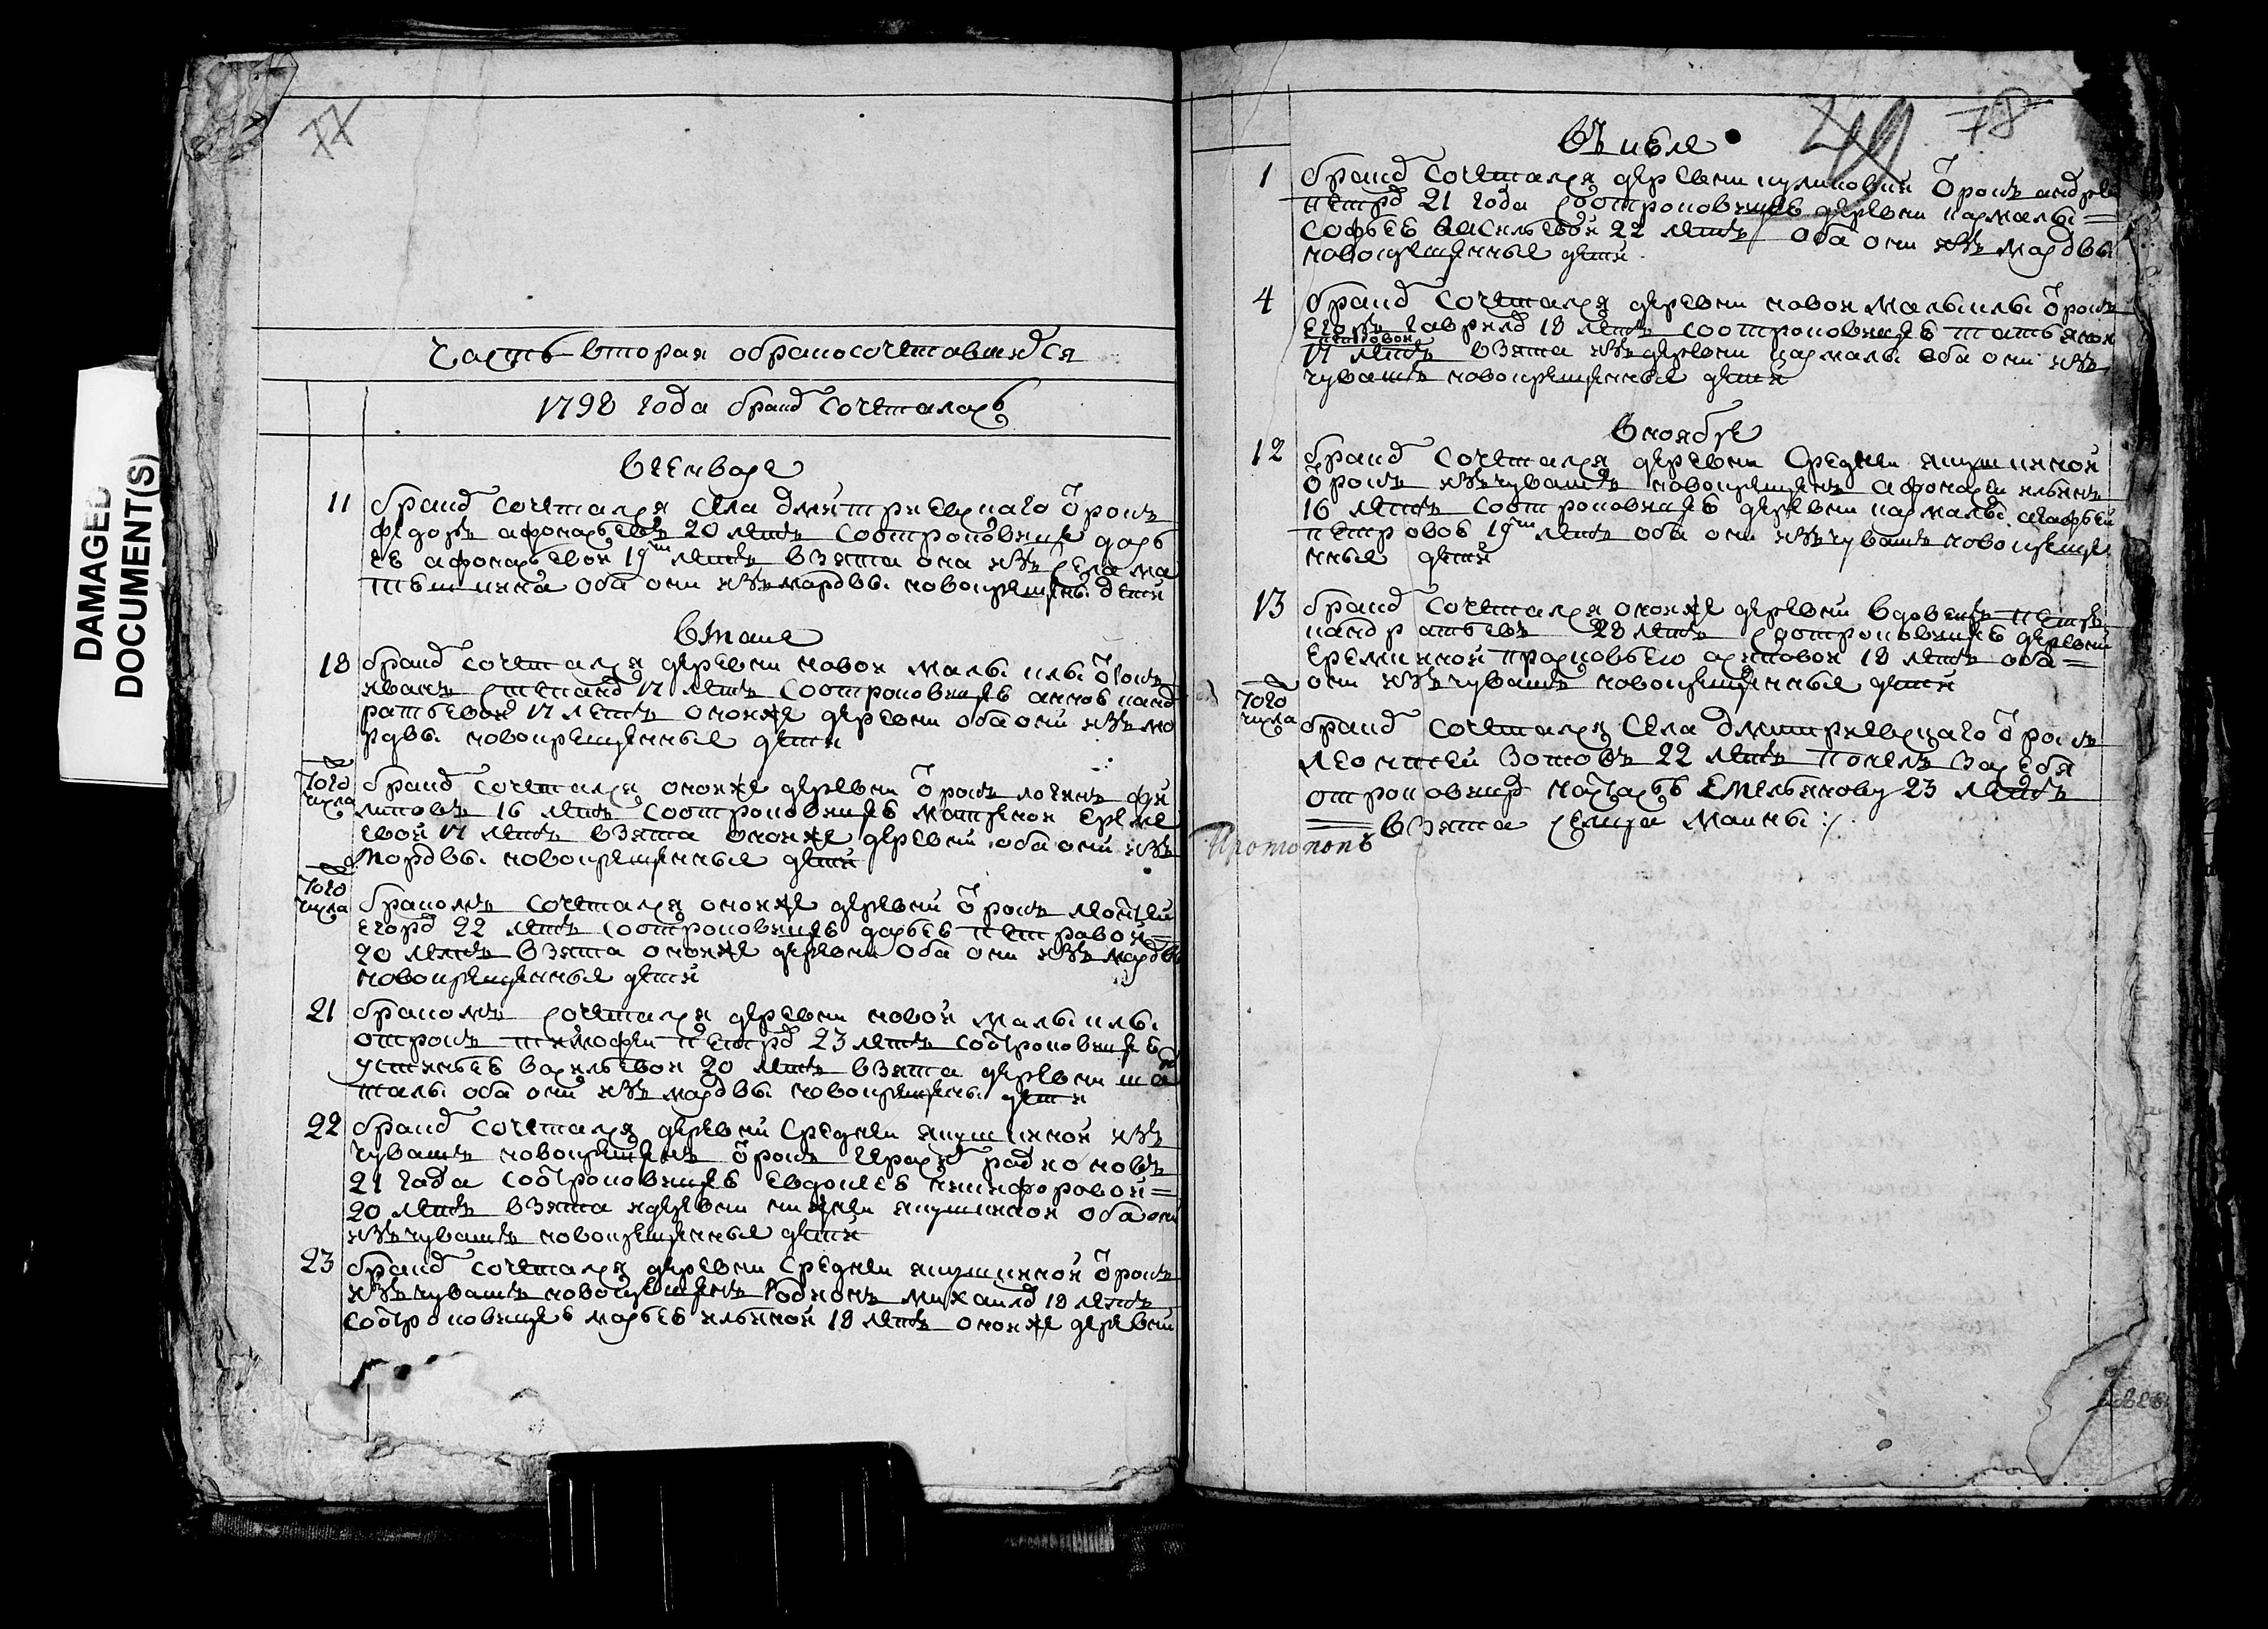 DAMAGED
DOCUMENT(S)
77
Часть вторая обракосочетавшихся
1798 года браком сочетались
в генваре
11 браком сочетался села дмитриевскаго отрокъ
федоръ афонасьевъ 20 летъ соотроковицею дарь
ею афонасьевой 19 летъ взята она изъ села ма
оба они изъ мордвы новокрещены дети
в маие
18 браком сочетался деревни новой малыклы отрокъ
иванъ степанов 17 летъ соотроковицею анною канд
ратьевой 17 летъ оной же деревни оба они изъ мо
рдвы новокрещенные дети
того
числа
браком сочетался оной же деревни отрокъ логинъ фи
липовъ 16 летъ соотроковицею матреной ереме
евой 17 летъ взята оной же деревни оба они изъ
мордвы новокрещенные дети
того
числа
бракомъ сочетался оной же деревни отрокъ моисей
егоров 22 летъ соотроковицею дарьею петравой
20 летъ взята оной же деревни оба они изъ мордвы
новокрещенные дети
21 бракомъ сочетался деревни новой малыклы
отрокъ тимофей петров 23 летъ соотроковицею
устиньею васильевой 20 летъ взята деревни
оба они изъ мордвы новокрещены дети
22 браком сочетался деревни средней якушкиной изъ
чувашъ новокрещенъ отрокъ радионовъ
21 года соотроковицею евдокеею никифоровой
20 летъ взята издеревни нижней якушкиной оба они
изъ чувашъ новокрещенные дети
23 браком сочетался деревни средней якушкиной отрокъ
изъ чувашъ новокрещенъ родионъ михаилов 18 летъ
соотроковицею марьею ильиной 18 летъ оной же деревни
49 78
въ июле
1 браком сочетался деревни куликовки отрокъ андрей
петров 21 года соотроковицею деревни кармалы
софьею васильевой 22 летъ оба они изъ мордвы
новокрещенные дети
4 браком сочетался деревни новой малыклы отрокъ
егоръ гаврилов 18 летъ соотроковицею татьяной
17 летъ взята изъ деревни кармалы оба они изъ
чувашъ новокрещенные дети
в ноябре
12 браком сочетался деревни средней якушкиной
отрокъ изъ чувашъ новокрещенъ афонасей ильинъ
16 летъ соотроковицею деревни кармалы агафьей
петровою 19 летъ оба они изъ чувашъ новокреще
нные дети
13 браком сочетался оной же деревни вдовецъ петръ
кандратьевъ 28 летъ соотроковицею деревни
еремкиной прасковьею архиповой 18 летъ оба
они изъ чувашъ новокрещенные дети
того
числа
браком сочетался села дмитриевскаго отрокъ
леонтей зотовъ 22 летъ понелъ засебя
отроковицу настасью емельянову 23 летъ
взята селца маины
Протопопъ